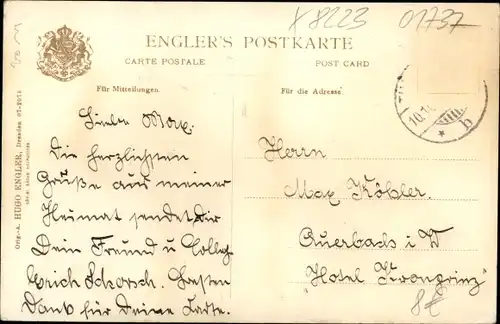 X 8223 01737
ENGLER'S POSTKARTE
CARTE POSTALE POST CARD
Für Mitteilungen. Für die Adresse.
HUGO ENGLER, Dresden
Lieber Max.
Die herzlichsten
Grüße aus meiner
Heimat sendet Dir
Dein Freund u Colleg.
Erich Schorsch. Besten
Dank für Deine Karte.
Herrn
Max Köhler.
Auerbach i V
"Hotel Kronprinz"
8€
b